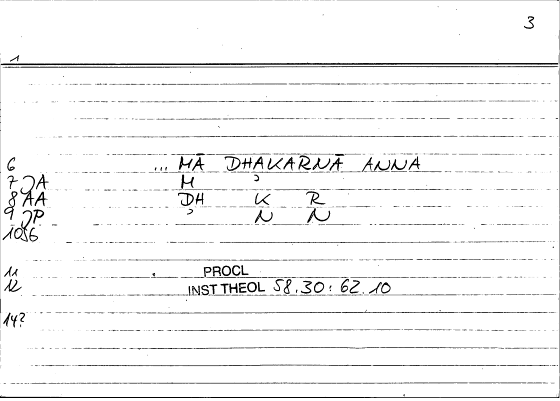 3
1
6 ... MĀ DHAKARNĀ ANNA
7 ϽA M ʾ
8 AA DH K R
9 ϽP ʾ N N
10 S6
11 PROCL
12 INST THEOL 58.30: 62.10
14?